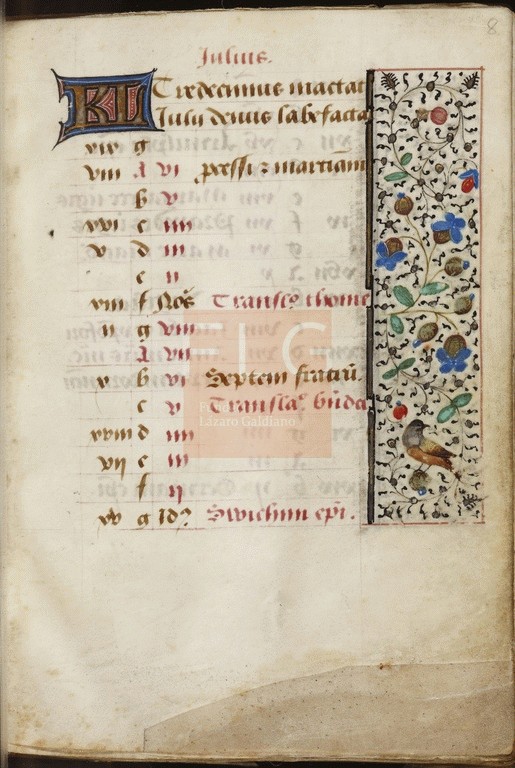 8
Iulius.
KL Tredecimus mactat
Iulii denus labefacta
xix g
viii A vi p̄cessi ⁊ martiani
b v
xvi c iiii
v d iii
e ii
xiii f Nōs Transl' thome
ii g viii
A vii
x b vi Septem fratrū.
c v Transla' b̄ndci
xviii d iiii
vii e iii
f ii
xv g Id' Swichini epi.
FLG
Lázaro Galdiano